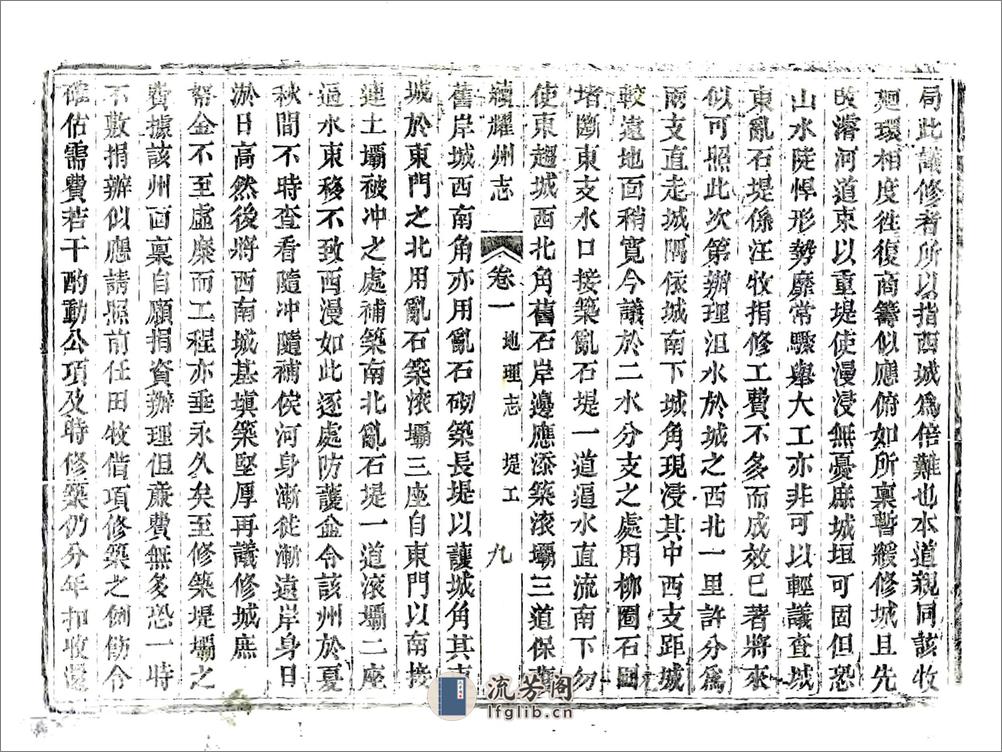 局此議修者所以指西城為倍難也本道親同該牧
廻環相度徃復商籌似應俯如所稟暫緩修城且先
濬河道束以重堤使漫浸無憂庶城垣可固但恐
山水陡悍形勢靡常驟舉大工亦非可以輕議查城
東亂石堤係汪牧捐修工費不多而成效已著將來
似可照此次第辦理沮水於城之西北一里許分為
兩支直走城隅依城南下城角現浸其中西支距城
較遠地面稍寬今議於二水分支之處用柳囤石囤
堵斷東支水口接築亂石堤一道逼水直流南下勿
使東趨城西北角舊石岸邊應添築滾壩三道保護
續耀州志 卷一 地理志 堤工 九
舊岸城西南角亦用亂石砌築長堤以護城角其東
城於東門之北用亂石築滾壩三座自東門以南接
連土壩被冲之處補築南北亂石堤一道滾壩二座
逼水東移不致西漫如此逐處防護並令該州於夏
秋間不時查看隨冲隨補俟河身漸徙漸遠岸身日
淤日高然後將西南城基塡築堅厚再議修城庶
帑金不至虛縻而工程亦垂永久矣至修築堤壩之
費據該州面稟自願捐資辦理但蕆費無多恐一時
不敷捐辦似應請照前任田牧借項修築之例飭令
確估需費若干酌動公項及時修築仍分年扣收還
流芳阁
lfglib.cn